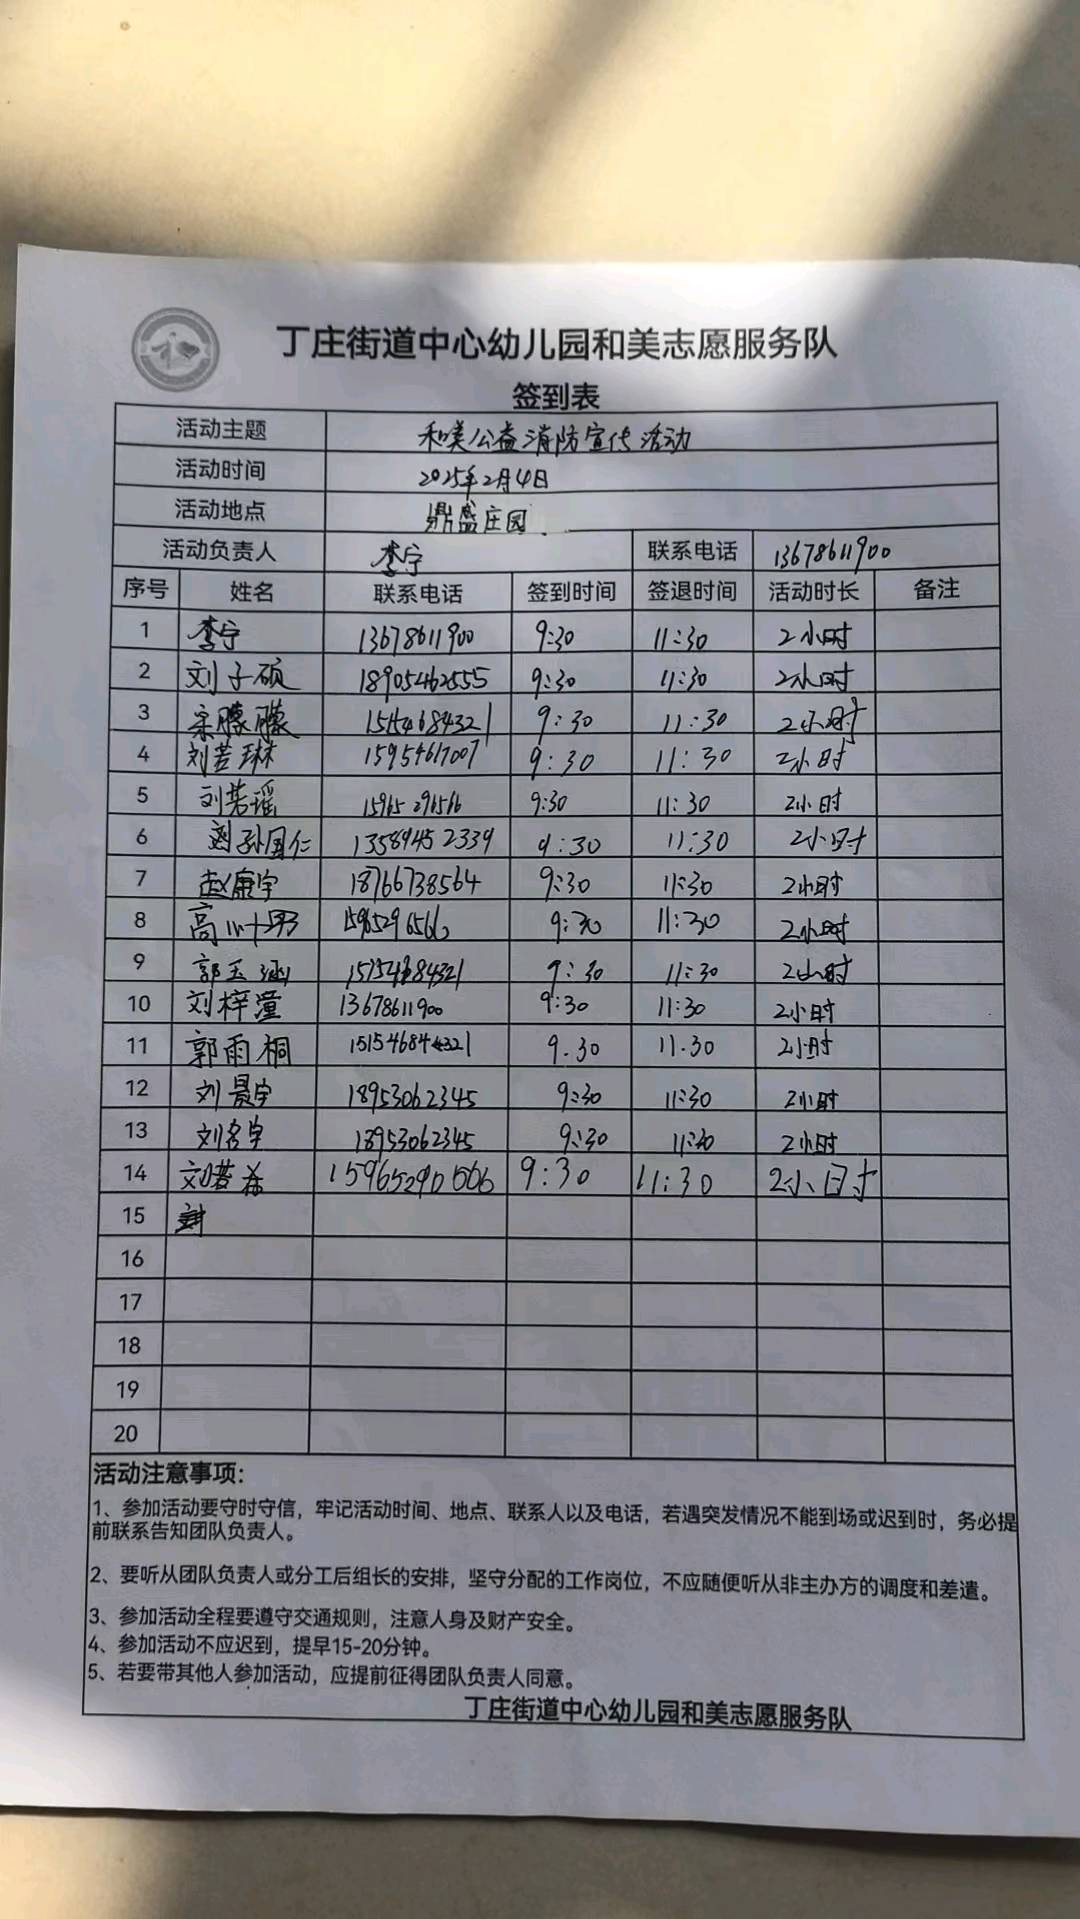 丁庄街道中心幼儿园和美志愿服务队
签到表
活动主题 和美公益消防宣传活动
活动时间 2025年2月4日
活动地点 鼎盛庄园
活动负责人 李宁 联系电话 13678611900
序号 姓名 联系电话 签到时间 签退时间 活动时长 备注
1 李宁 13678611900 9:30 11:30 2小时
2 刘子硕 18905462555 9:30 11:30 2小时
3 宋朦朦 15154684321 9:30 11:30 2小时
4 刘若琳 15954617007 9:30 11:30 2小时
5 刘若瑶 15965291566 9:30 11:30 2小时
6 孙国仁 13589452339 9:30 11:30 2小时
7 赵康宇 18766738564 9:30 11:30 2小时
8 高 9:30 11:30 2小时
9 郭玉涵 15154684321 9:30 11:30 2小时
10 刘梓潼 13678611900 9:30 11:30 2小时
11 郭雨桐 15154684321 9.30 11.30 2小时
12 刘晨宇 18953062345 9:30 11:30 2小时
13 刘名宇 18953062345 9:30 11:30 2小时
14 刘若希 9:30 11:30 2小时
15
16
17
18
19
20
活动注意事项：
1、参加活动要守时守信，牢记活动时间、地点、联系人以及电话，若遇突发情况不能到场或迟到时，务必提
前联系告知团队负责人。
2、要听从团队负责人或分工后组长的安排，坚守分配的工作岗位，不应随便听从非主办方的调度和差遣。
3、参加活动全程要遵守交通规则，注意人身及财产安全。
4、参加活动不应迟到，提早15-20分钟。
5、若要带其他人参加活动，应提前征得团队负责人同意。
丁庄街道中心幼儿园和美志愿服务队